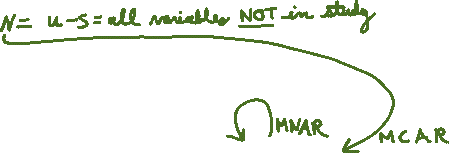 N = U - S = all variables NOT in study
MNAR
MCAR